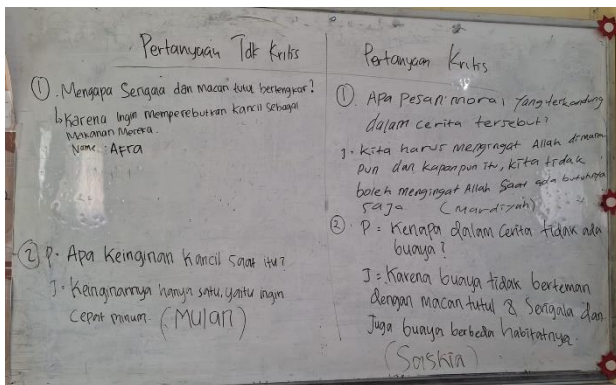 Pertanyaan Tdk Kritis
① Mengapa Serigala dan macan tutul bertengkar?
↳ Karena Ingin memperebutkan kancil sebagai
Makanan Mereka.
Name : AFra
② P. Apa Keinginan Kancil saat itu?
J. Keinginannya hanya satu, yaitu ingin
cepat minum. (Mulan)
Pertanyaan Kritis
①. Apa pesan moral yang terkandung
dalam cerita tersebut?
J. Kita harus mengingat Allah dimana
pun dan kapan pun itu, kita tidak
boleh mengingat Allah saat ada butuhnya
saja (Mardiyah)
② P = Kenapa dalam Cerita tidak ada
buaya?
J = Karena buaya tidak berteman
dengan macan tutul & Serigala dan
Juga buaya berbeda habitatnya.
(Saskia)